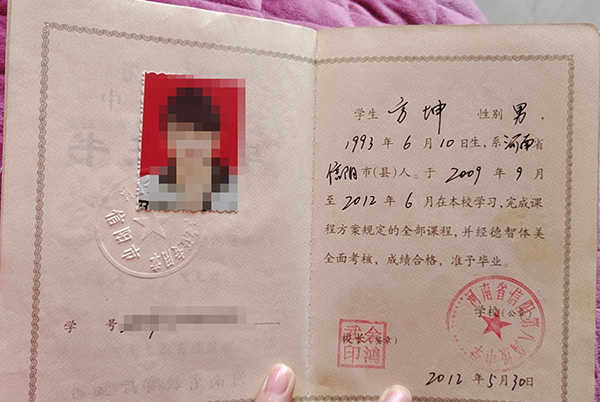 信阳市
学 号
学生 方坤 性别 男.
1993 年 6 月 10 日生, 系 河南 省
信阳 市(县)人。于 2009 年 9 月
至 2012 年 6 月在本校学习,完成课
程方案规定的全部课程,并经德智体美
全面考核,成绩合格,准予毕业。
河南省信阳
学校(公章)
校长(签章)
印鸿
2012 年 5 月 30 日